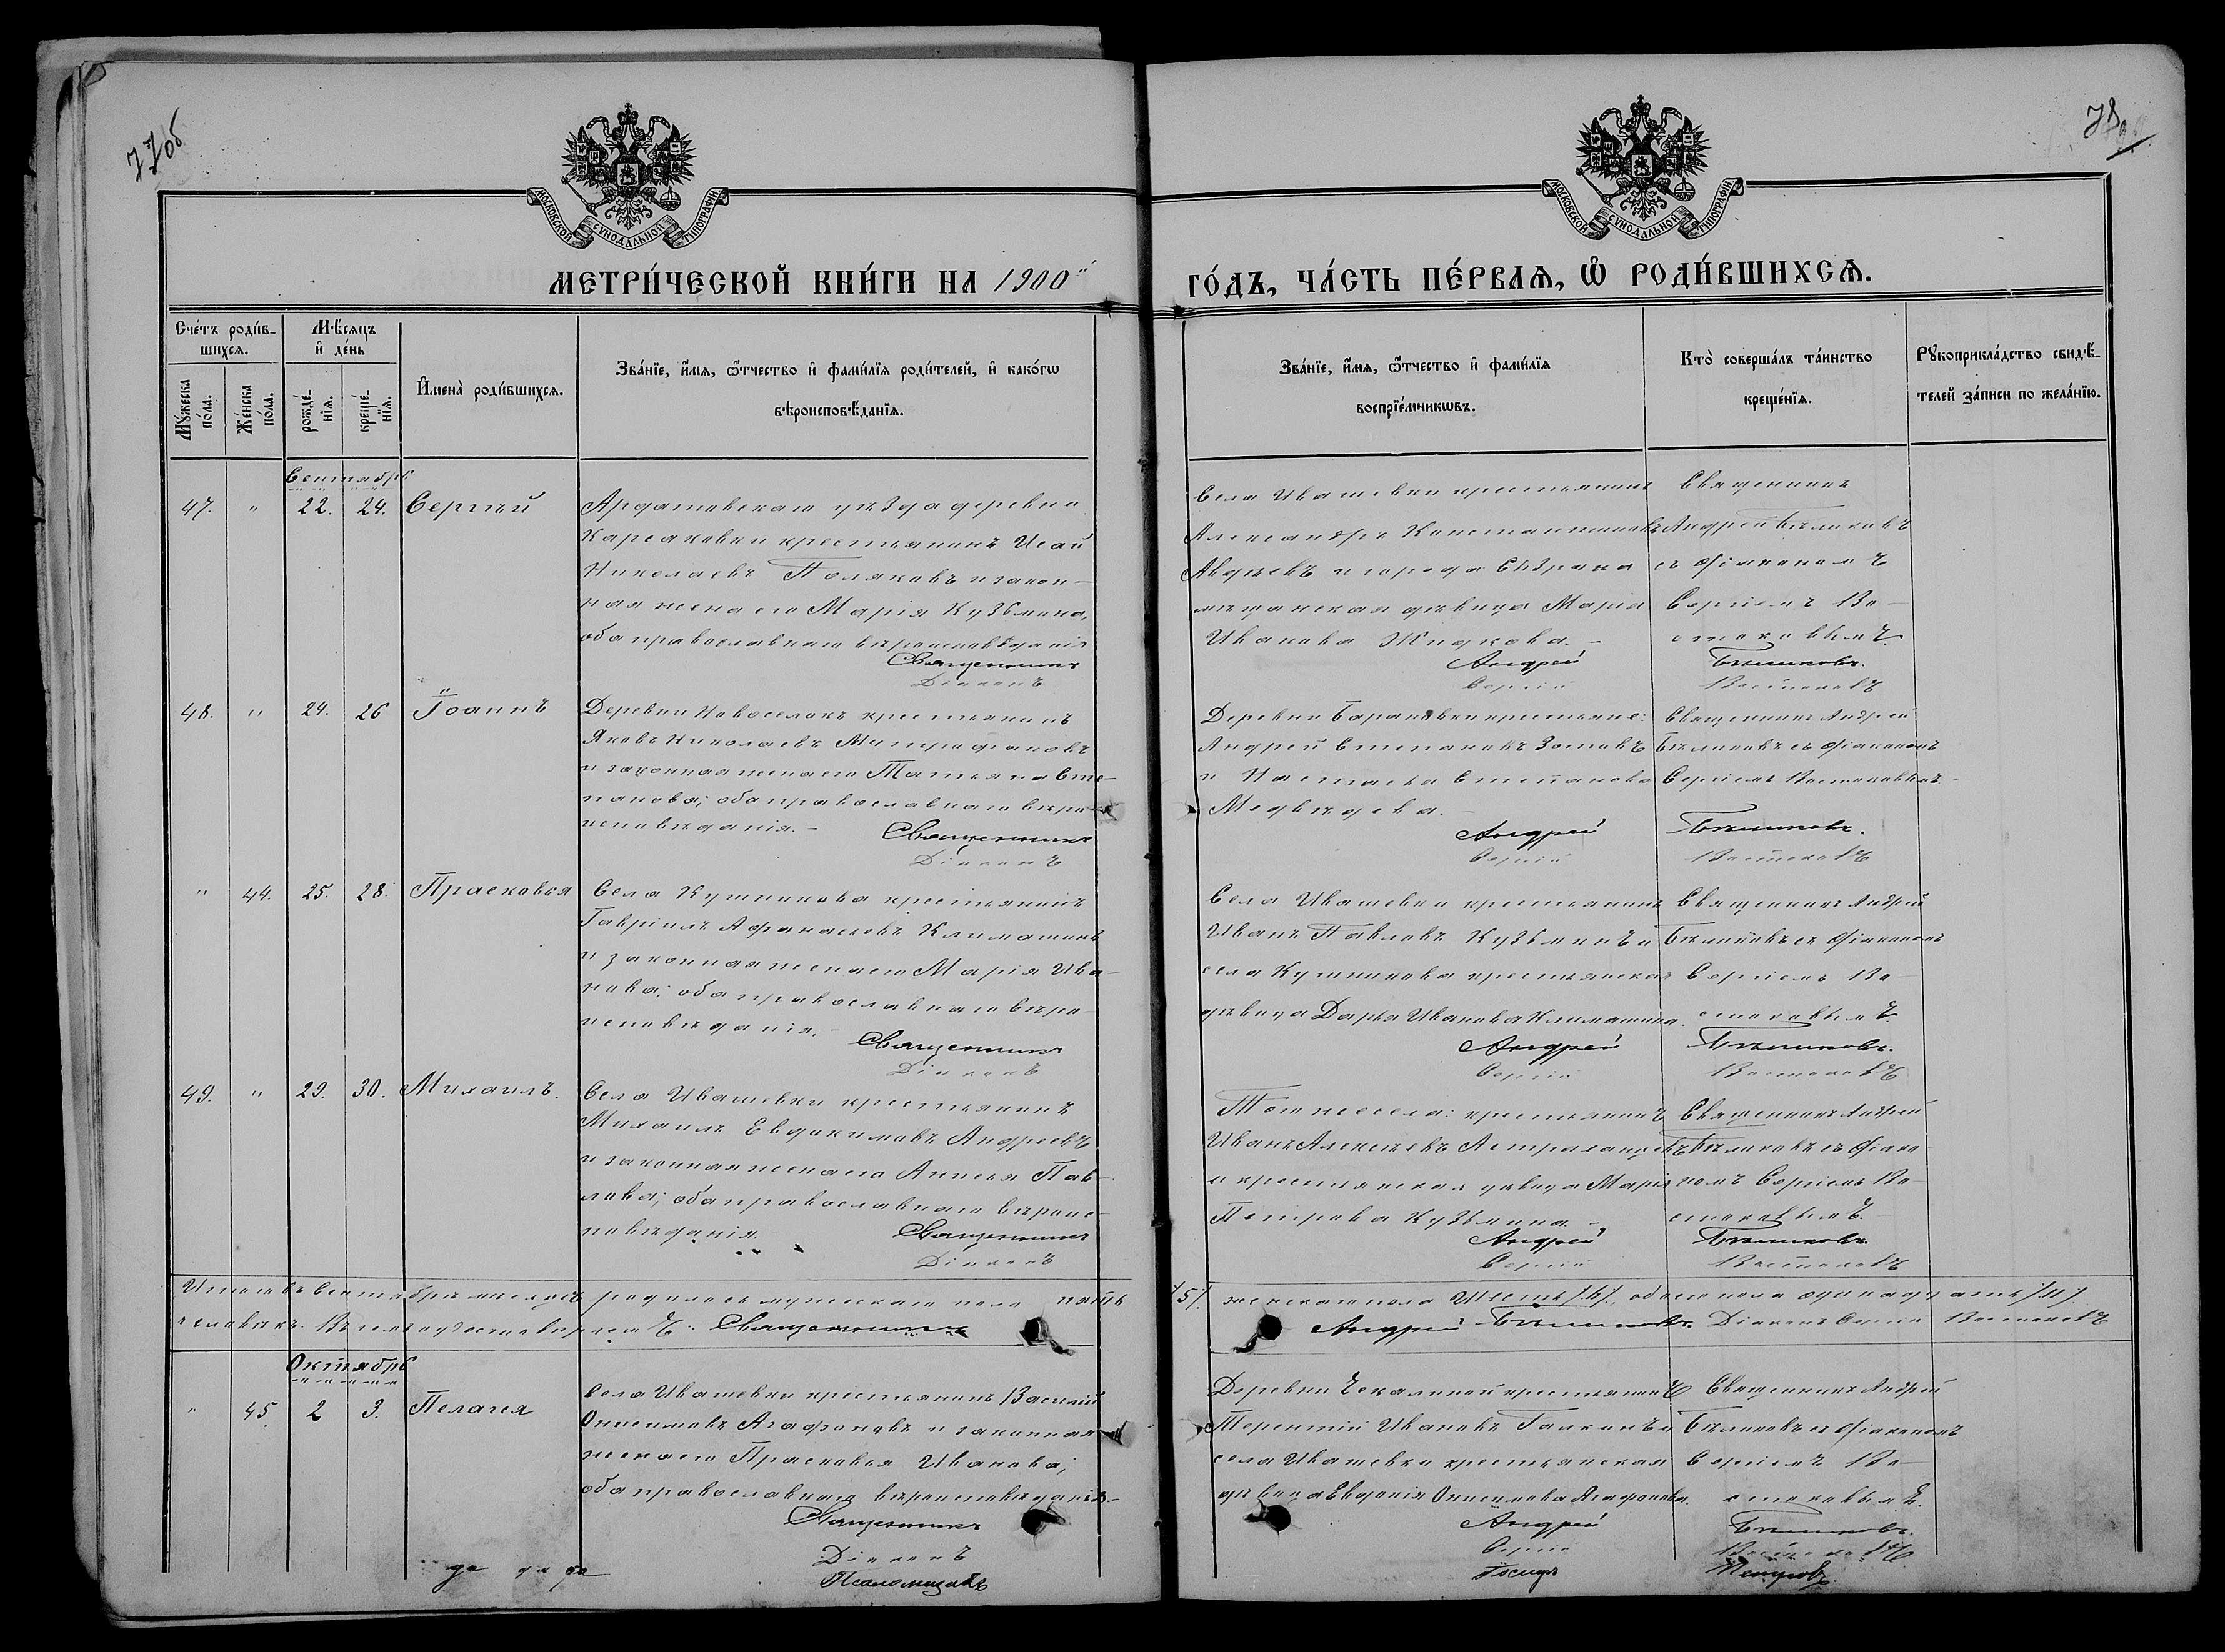 77об
78
МОСКОВСКОЙ СѴНОДАЛЬНОЙ ТИПОГРАФІИ
МОСКОВСКОЙ СѴНОДАЛЬНОЙ ТИПОГРАФІИ
МЕТРИ́ЧЕСКОЙ КНИ́ГИ НА 1900й
ГО́ДЪ, ЧА́СТЬ ПЕ́РВАѦ, Ѡ РОДИ́ВШИХСѦ.
Сче́тъ роди́в-
шихсѧ.
Мꙋ́жеска по́ла.
Же́нска по́ла.
Мѣ́сѧцъ
и де́нь
рожде́нїѧ.
креще́нїѧ.
Имена̀ роди́вшихсѧ.
Зва́нїе, и́мѧ, ѻ҆́тчество и фами́лїѧ роди́телей, и како́гѡ
вѣроисповѣ́данїѧ.
Зва́нїе, и́мѧ, ѻ҆́тчество и фами́лїѧ
воспрїе́мникѡвъ.
Кто̀ соверша́лъ та́инство
креще́нїѧ.
Рꙋкоприкла́дство свидѣ́-
телей за́писи по жела́нїю.
Сентябрь
47. " 22. 24. Сергѣй
Ардатовскаго уѣзда деревни
Карсаковки крестьянинъ Исай
Николаевъ Поляковъ и закон-
ная жена его Марія Кузьмина,
оба православнаго вѣроисповѣданія
Священникъ
Діаконъ
Села Ивашевки крестьянинъ
Александръ Константиновъ
Авдѣевъ и города Сызрана
мѣщанская дѣвица Марія
Иванова Жидкова. -
Андрей
Сергій
Священникъ
Андрей Бѣликовъ
съ діакономъ
Сергіемъ Во-
стоковымъ.
Бѣликовъ.
Востоковъ
48. " 24. 26 Іоаннъ
Деревни Новоселокъ крестьянинъ
Яковъ Николаевъ Митрофановъ
и законная жена его Татьяна Сте-
панова; оба православнаго вѣро-
исповѣданія. -
Священникъ
Діаконъ
Деревни Барановки крестьяне:
Андрей Степановъ Зотовъ
и Настасья Степанова
Медвѣдева.
Андрей
Сергій
Священникъ Андрей
Бѣликовъ съ діакономъ
Сергіемъ Востоковымъ. -
Бѣликовъ.
Востоковъ
" 44. 25. 28. Прасковья
Села Кушникова крестьянинъ
Гавріилъ Афанасьевъ Климашинъ
и законная жена его Марія Ива-
нова; оба православнаго вѣро-
исповѣданія. -
Священникъ
Діаконъ
Села Ивашевки крестьянинъ
Иванъ Павловъ Кузьминъ и
села Кушникова крестьянская
дѣвица Дарья Иванова Климашина.
Андрей
Сергій
Священникъ Андрей
Бѣликовъ съ діакономъ
Сергіемъ Во-
стоковымъ.
Бѣликовъ.
Востоковъ
49. " 29. 30. Михаилъ.
Села Ивашевки крестьянинъ
Михаилъ Евдокимовъ Андреевъ
и законная жена его Анисья Пав-
лова; оба православнаго вѣроис-
повѣданія.
Священникъ
Діаконъ
Того же села: крестьянинъ
Иванъ Алексѣевъ Астраханцевъ
и крестьянская дѣвица Марія
Петрова Кузьмина -
Андрей
Сергій
Священникъ Андрей
Бѣликовъ съ діако
номъ Сергіемъ Во-
стоковымъ. -
Бѣликовъ.
Востоковъ
Итого въ Сентябрѣ мѣсяцѣ родилось мужескаго пола пять /5/. женскаго пола Шесть /6/., обоего пола одинадцать /11/
человѣкъ. Священникъ Андрей Бѣликовъ. Діаконъ Сергій Востоковъ
Октябрь
" 45. 2 3. Пелагея
Села Ивашевки крестьянинъ Василій
Онисимовъ Агафоновъ и законная
жена его Прасковья Иванова;
оба православнаго вѣроисповѣданія. -
Священникъ
Діаконъ
Псаломщикъ
Деревни Чекалиной крестьянинъ
Терентій Ивановъ Галкинъ и
села Ивашевки крестьянская
дѣвица Евдокія Онисимова Агафонова.
Андрей
Сергій
Священникъ Андрей
Бѣликовъ съ діакономъ
Сергіемъ Во-
стоковымъ.
Бѣликовъ.
Востоковъ